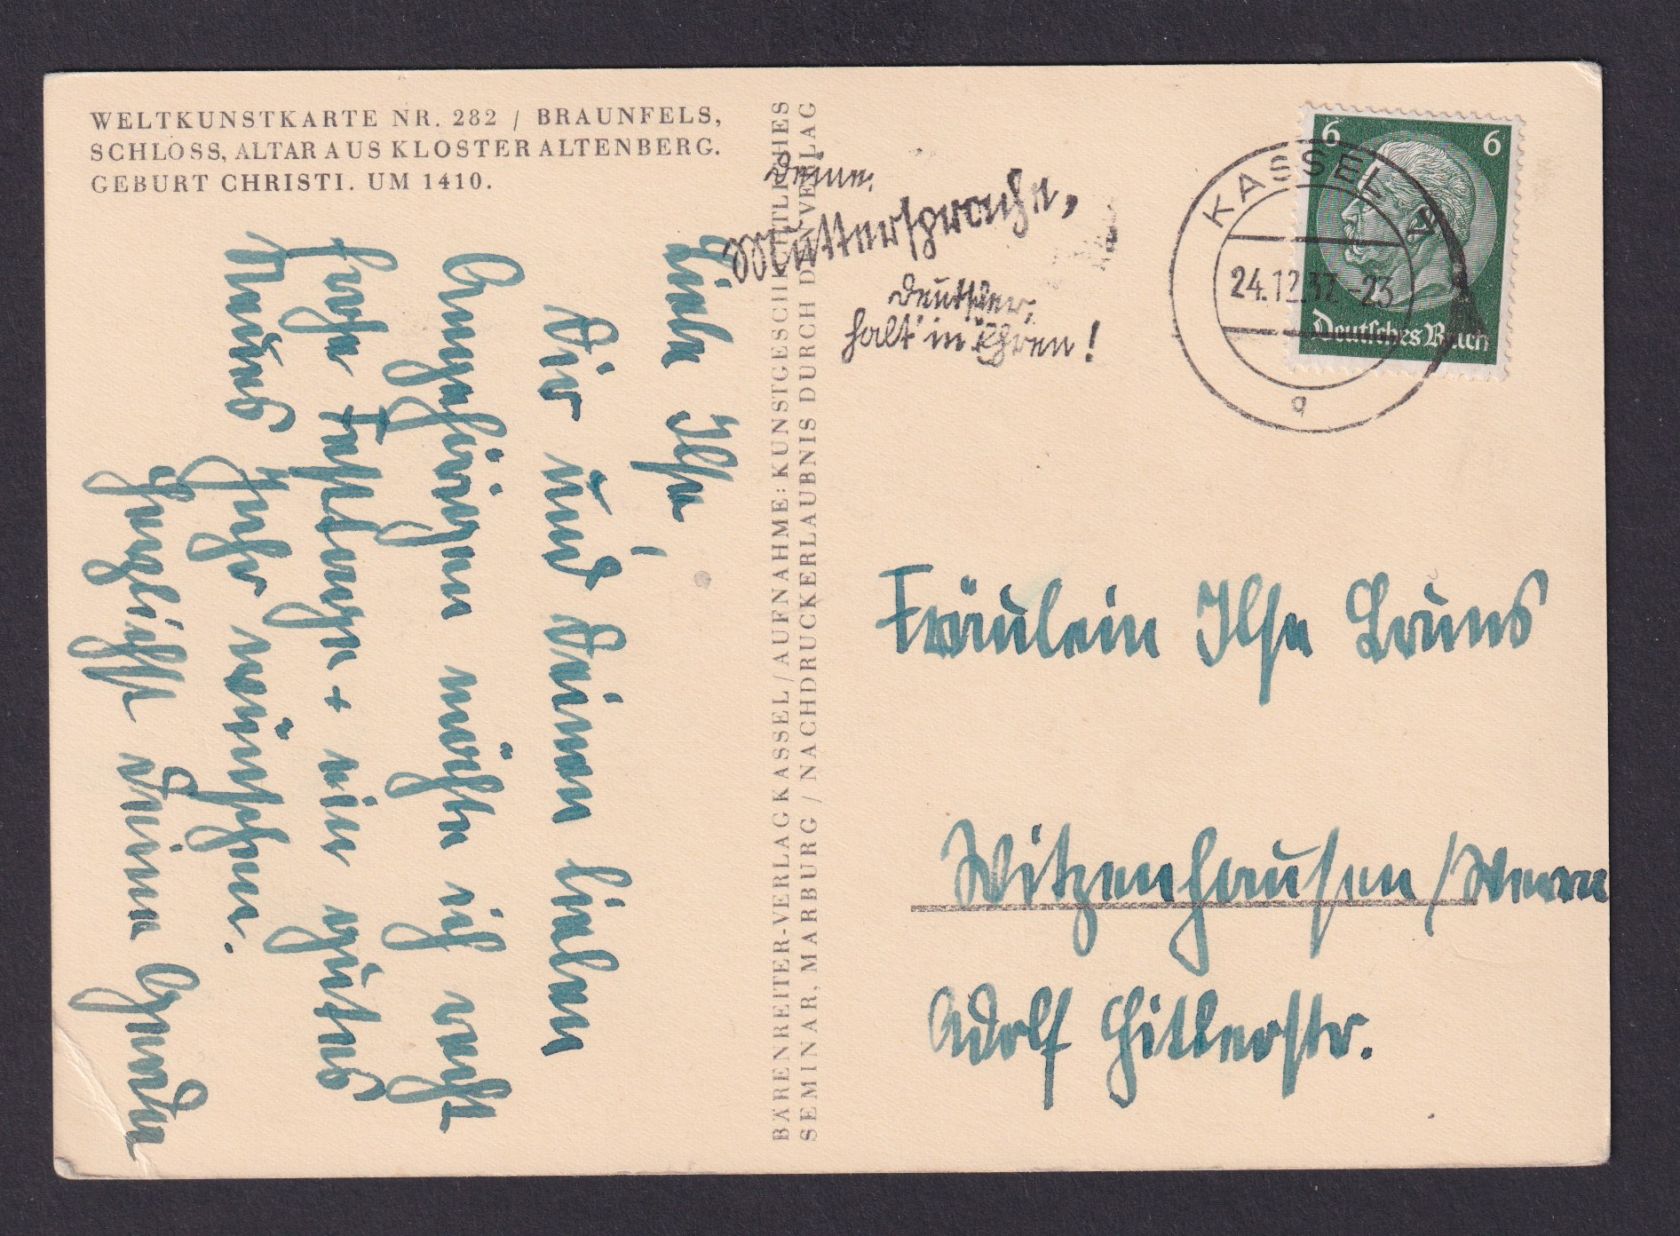 WELTKUNSTKARTE NR. 282 / BRAUNFELS,
SCHLOSS, ALTAR AUS KLOSTER ALTENBERG.
GEBURT CHRISTI. UM 1410.
Liebe Ilse,
Dir und Deinen lieben
Angehörigen möchte ich recht
frohe Festtage + ein gutes
Neues Jahr wünschen.
Herzlichst Deine Gerda
BÄRENREITER-VERLAG KASSEL / AUFNAHME: KUNSTGESCHICHTLICHES
SEMINAR, MARBURG / NACHDRUCKERLAUBNIS DURCH D. VERLAG
Deine
Muttersprache,
Deutscher,
halt' in Ehren!
KASSEL
24.12.37.-23
6
6
Deutsches Reich
Fräulein Ilse Bruns
Witzenhausen / Werra
Adolf Hitlerstr.